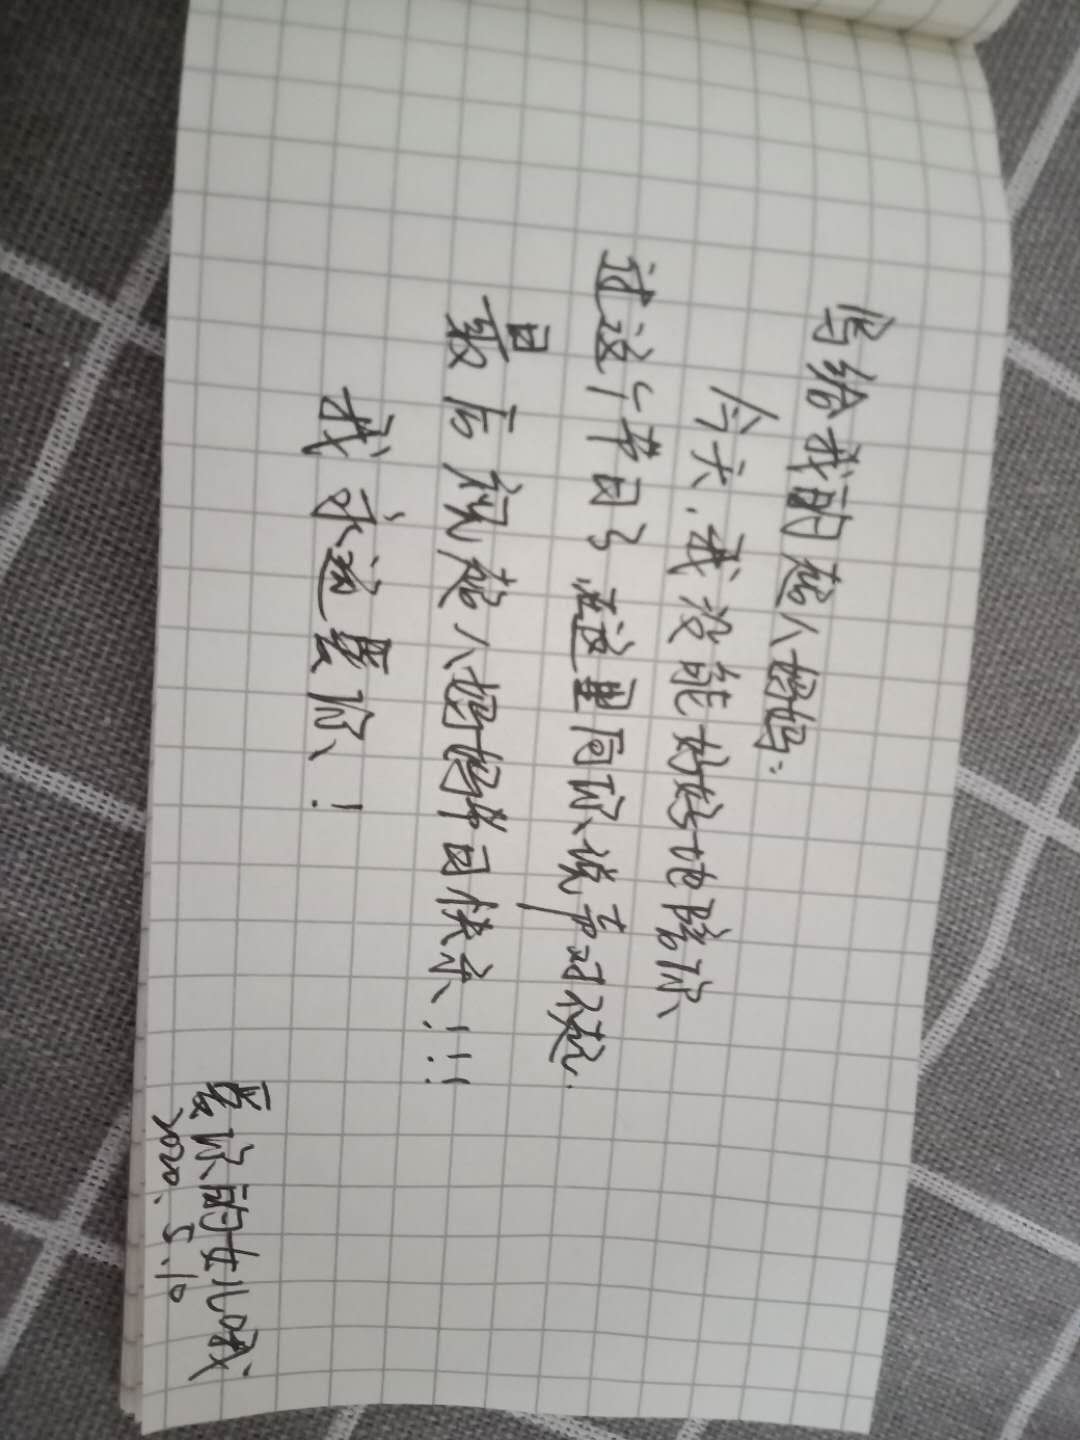 写给我的超人妈妈：
今天，我没能好好地陪你
过这个节日了，在这里同你说声对不起.
最后祝超人妈妈节日快乐！！！
我永远爱你！
爱你的女儿哦
2020.5.10